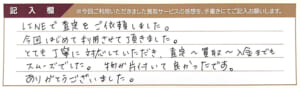 記入欄 ※今回ご利用いただきました買取サービスの感想を、手書きにてご記入お願いします。
LINEで査定をご依頼しました。
今回はじめて利用させて頂きました。
とても丁寧に対応していただき、査定〜買取〜入金までも
スムーズでした。物が片付いて良かったです。
ありがとうございました。